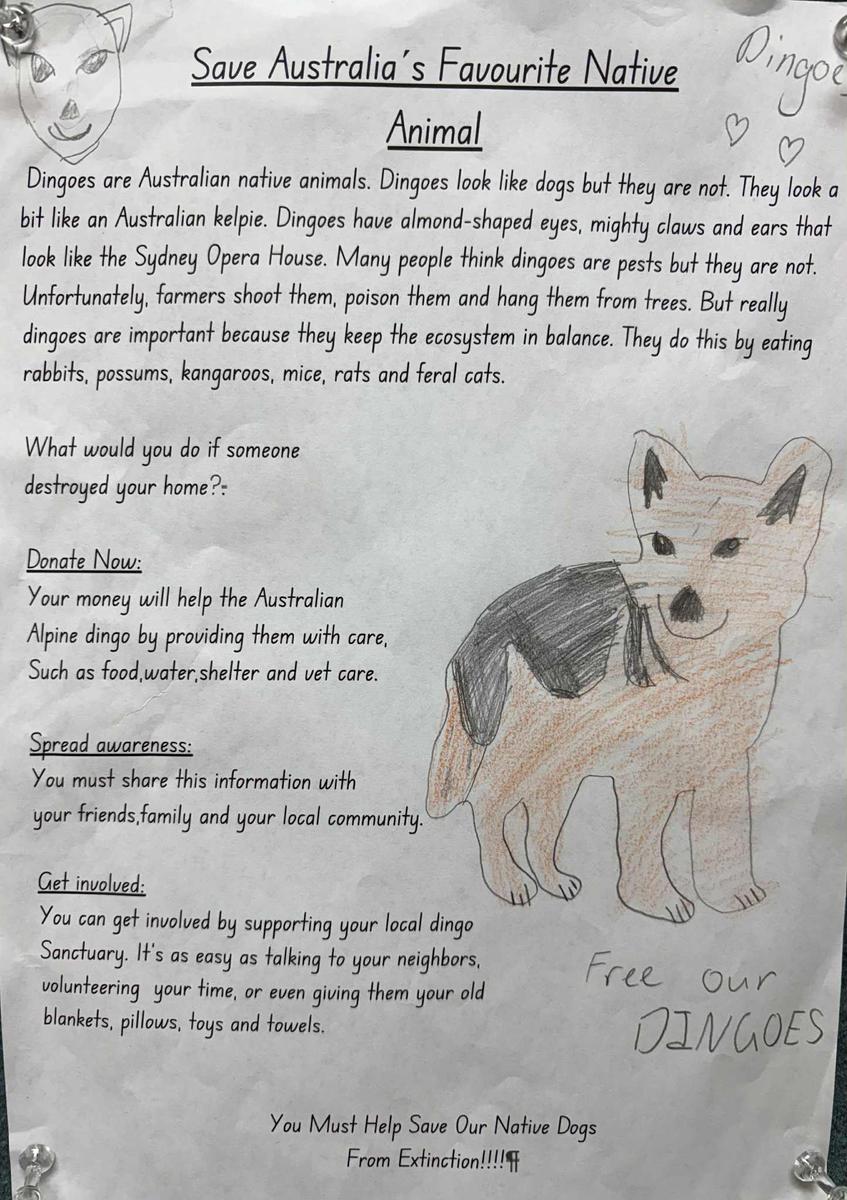 Save Australia´s Favourite Native
Animal
Dingoe
Dingoes are Australian native animals. Dingoes look like dogs but they are not. They look a
bit like an Australian kelpie. Dingoes have almond-shaped eyes, mighty claws and ears that
look like the Sydney Opera House. Many people think dingoes are pests but they are not.
Unfortunately, farmers shoot them, poison them and hang them from trees. But really
dingoes are important because they keep the ecosystem in balance. They do this by eating
rabbits, possums, kangaroos, mice, rats and feral cats.
What would you do if someone
destroyed your home?:
Donate Now:
Your money will help the Australian
Alpine dingo by providing them with care,
Such as food,water,shelter and vet care.
Spread awareness:
You must share this information with
your friends,family and your local community.
Get involved:
You can get involved by supporting your local dingo
Sanctuary. It's as easy as talking to your neighbors,
volunteering  your time, or even giving them your old
blankets, pillows, toys and towels.
Free our
DINGOES
You Must Help Save Our Native Dogs
From Extinction!!!!¶